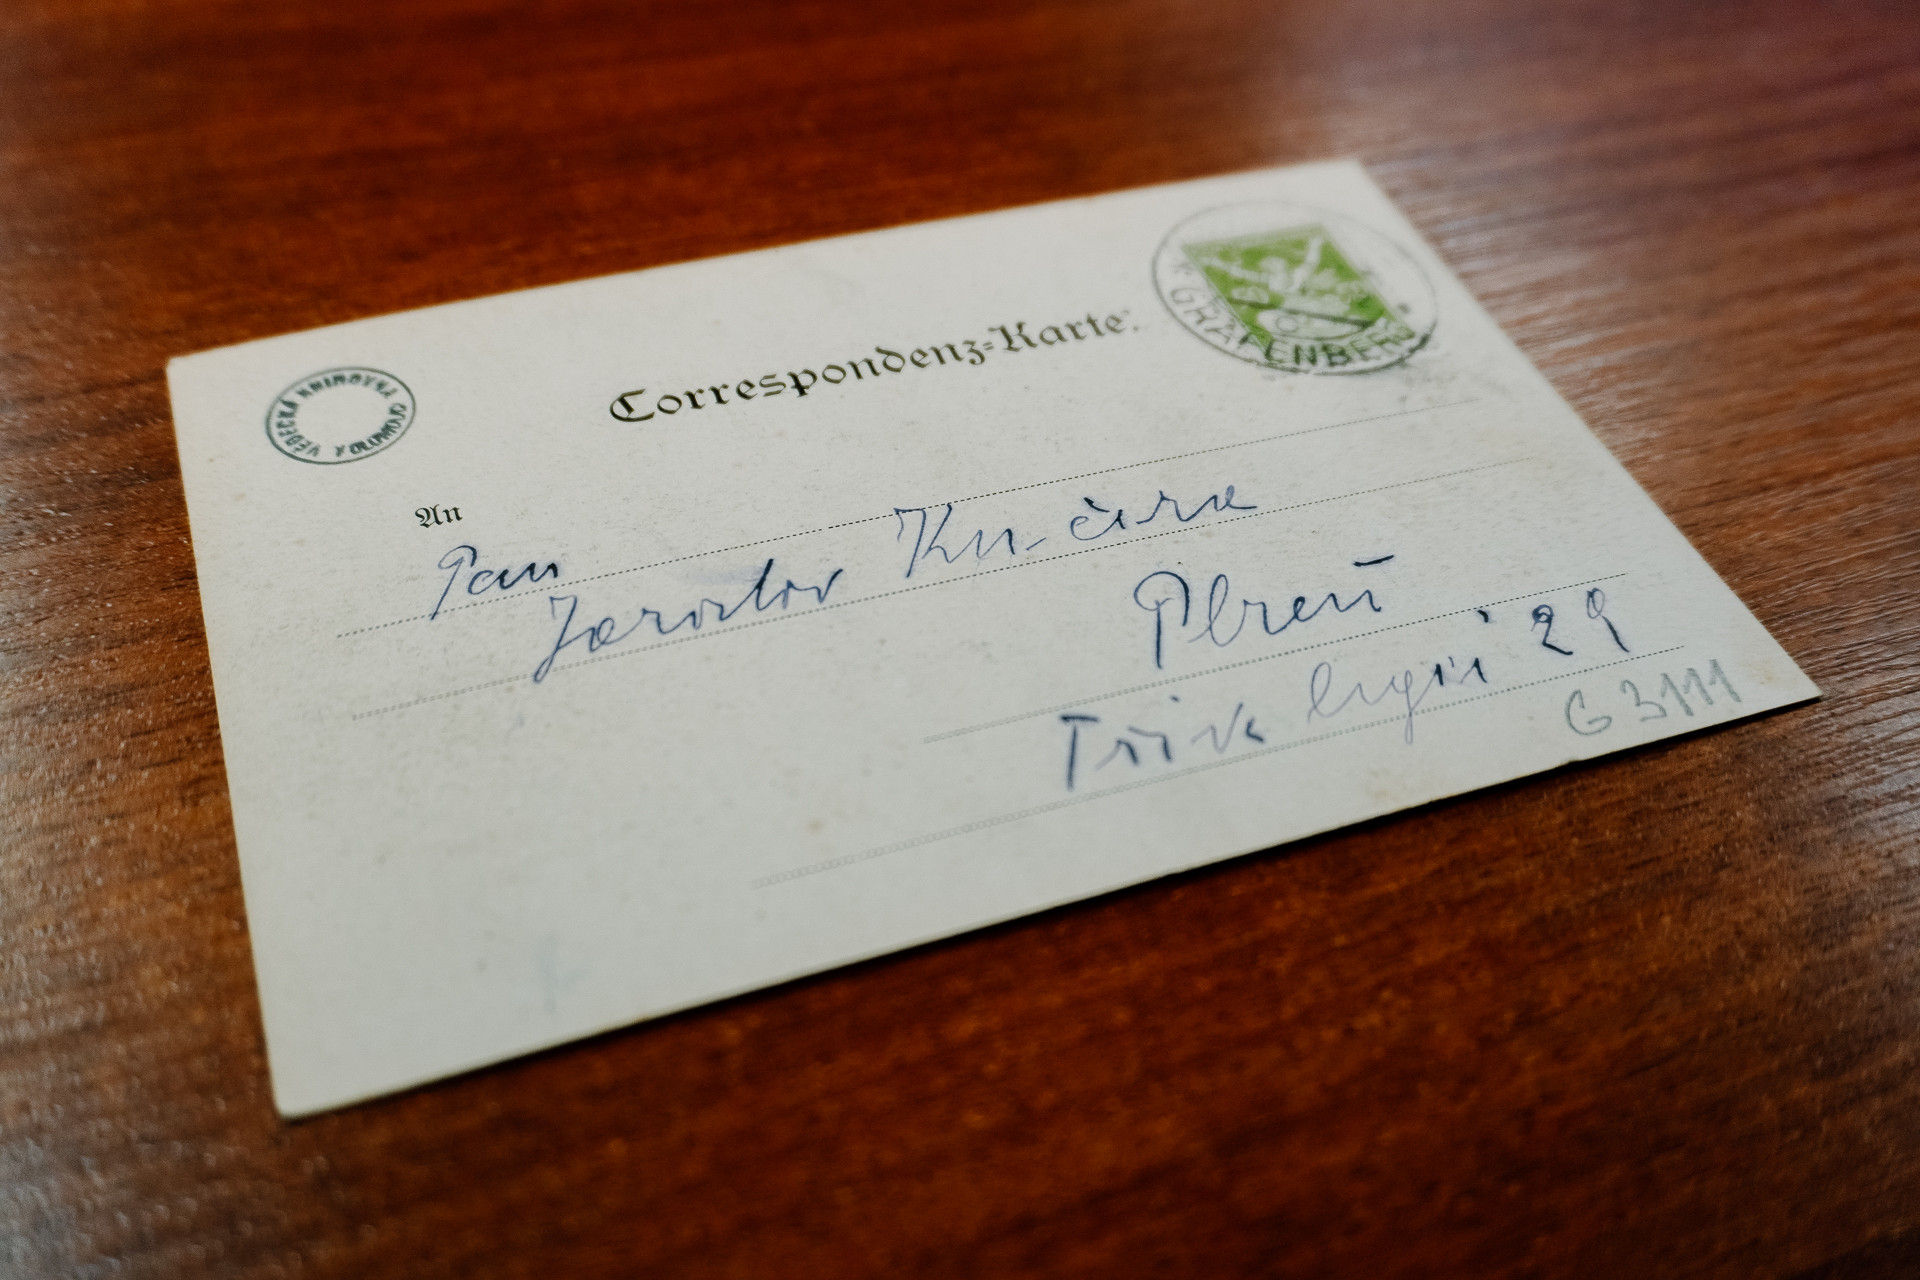 Correspondenz-Karte.
GRÄFENBERG
VĚDECKÁ KNIHOVNA V OLOMOUCI
An
Pan
Jaroslav Kučera
Plzeň
29
G 3111